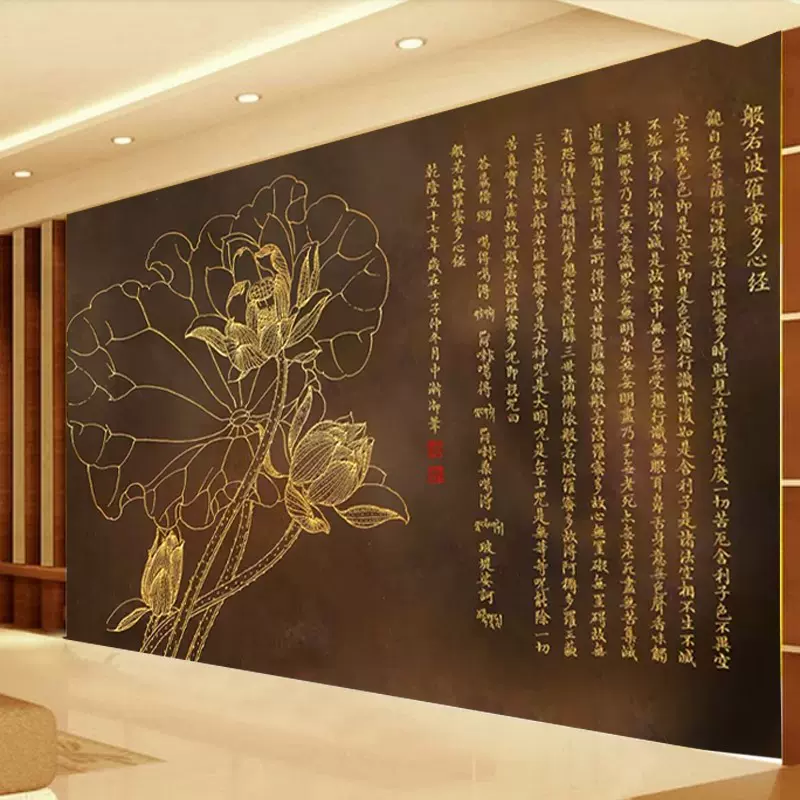 般若波羅蜜多心经
觀自在菩薩行深般若波羅蜜多時照見五蘊皆空度一切苦厄舍利子色不異空
空不異色色即是空空即是色受想行識亦復如是舍利子是諸法空相不生不滅
不垢不淨不增不減是故空中無色無受想行識無眼耳鼻舌身意無色聲香味觸
法無眼界乃至無意識界無無明亦無無明盡乃至無老死亦無老死盡無苦集滅
道無智亦無得以無所得故菩提薩埵依般若波羅蜜多故心無罣礙無罣礙故無
有恐怖遠離顛倒夢想究竟涅槃三世諸佛依般若波羅蜜多故得阿耨多羅三藐
三菩提故知般若波羅蜜多是大神咒是大明咒是無上咒是無等等咒能除一切
苦真實不虛故說般若波羅蜜多咒即說咒曰
噶得噶得 噶得 噶得 娑訶
般若波羅蜜多心经
乾隆五十七年歲在壬子仲冬月中澣御筆